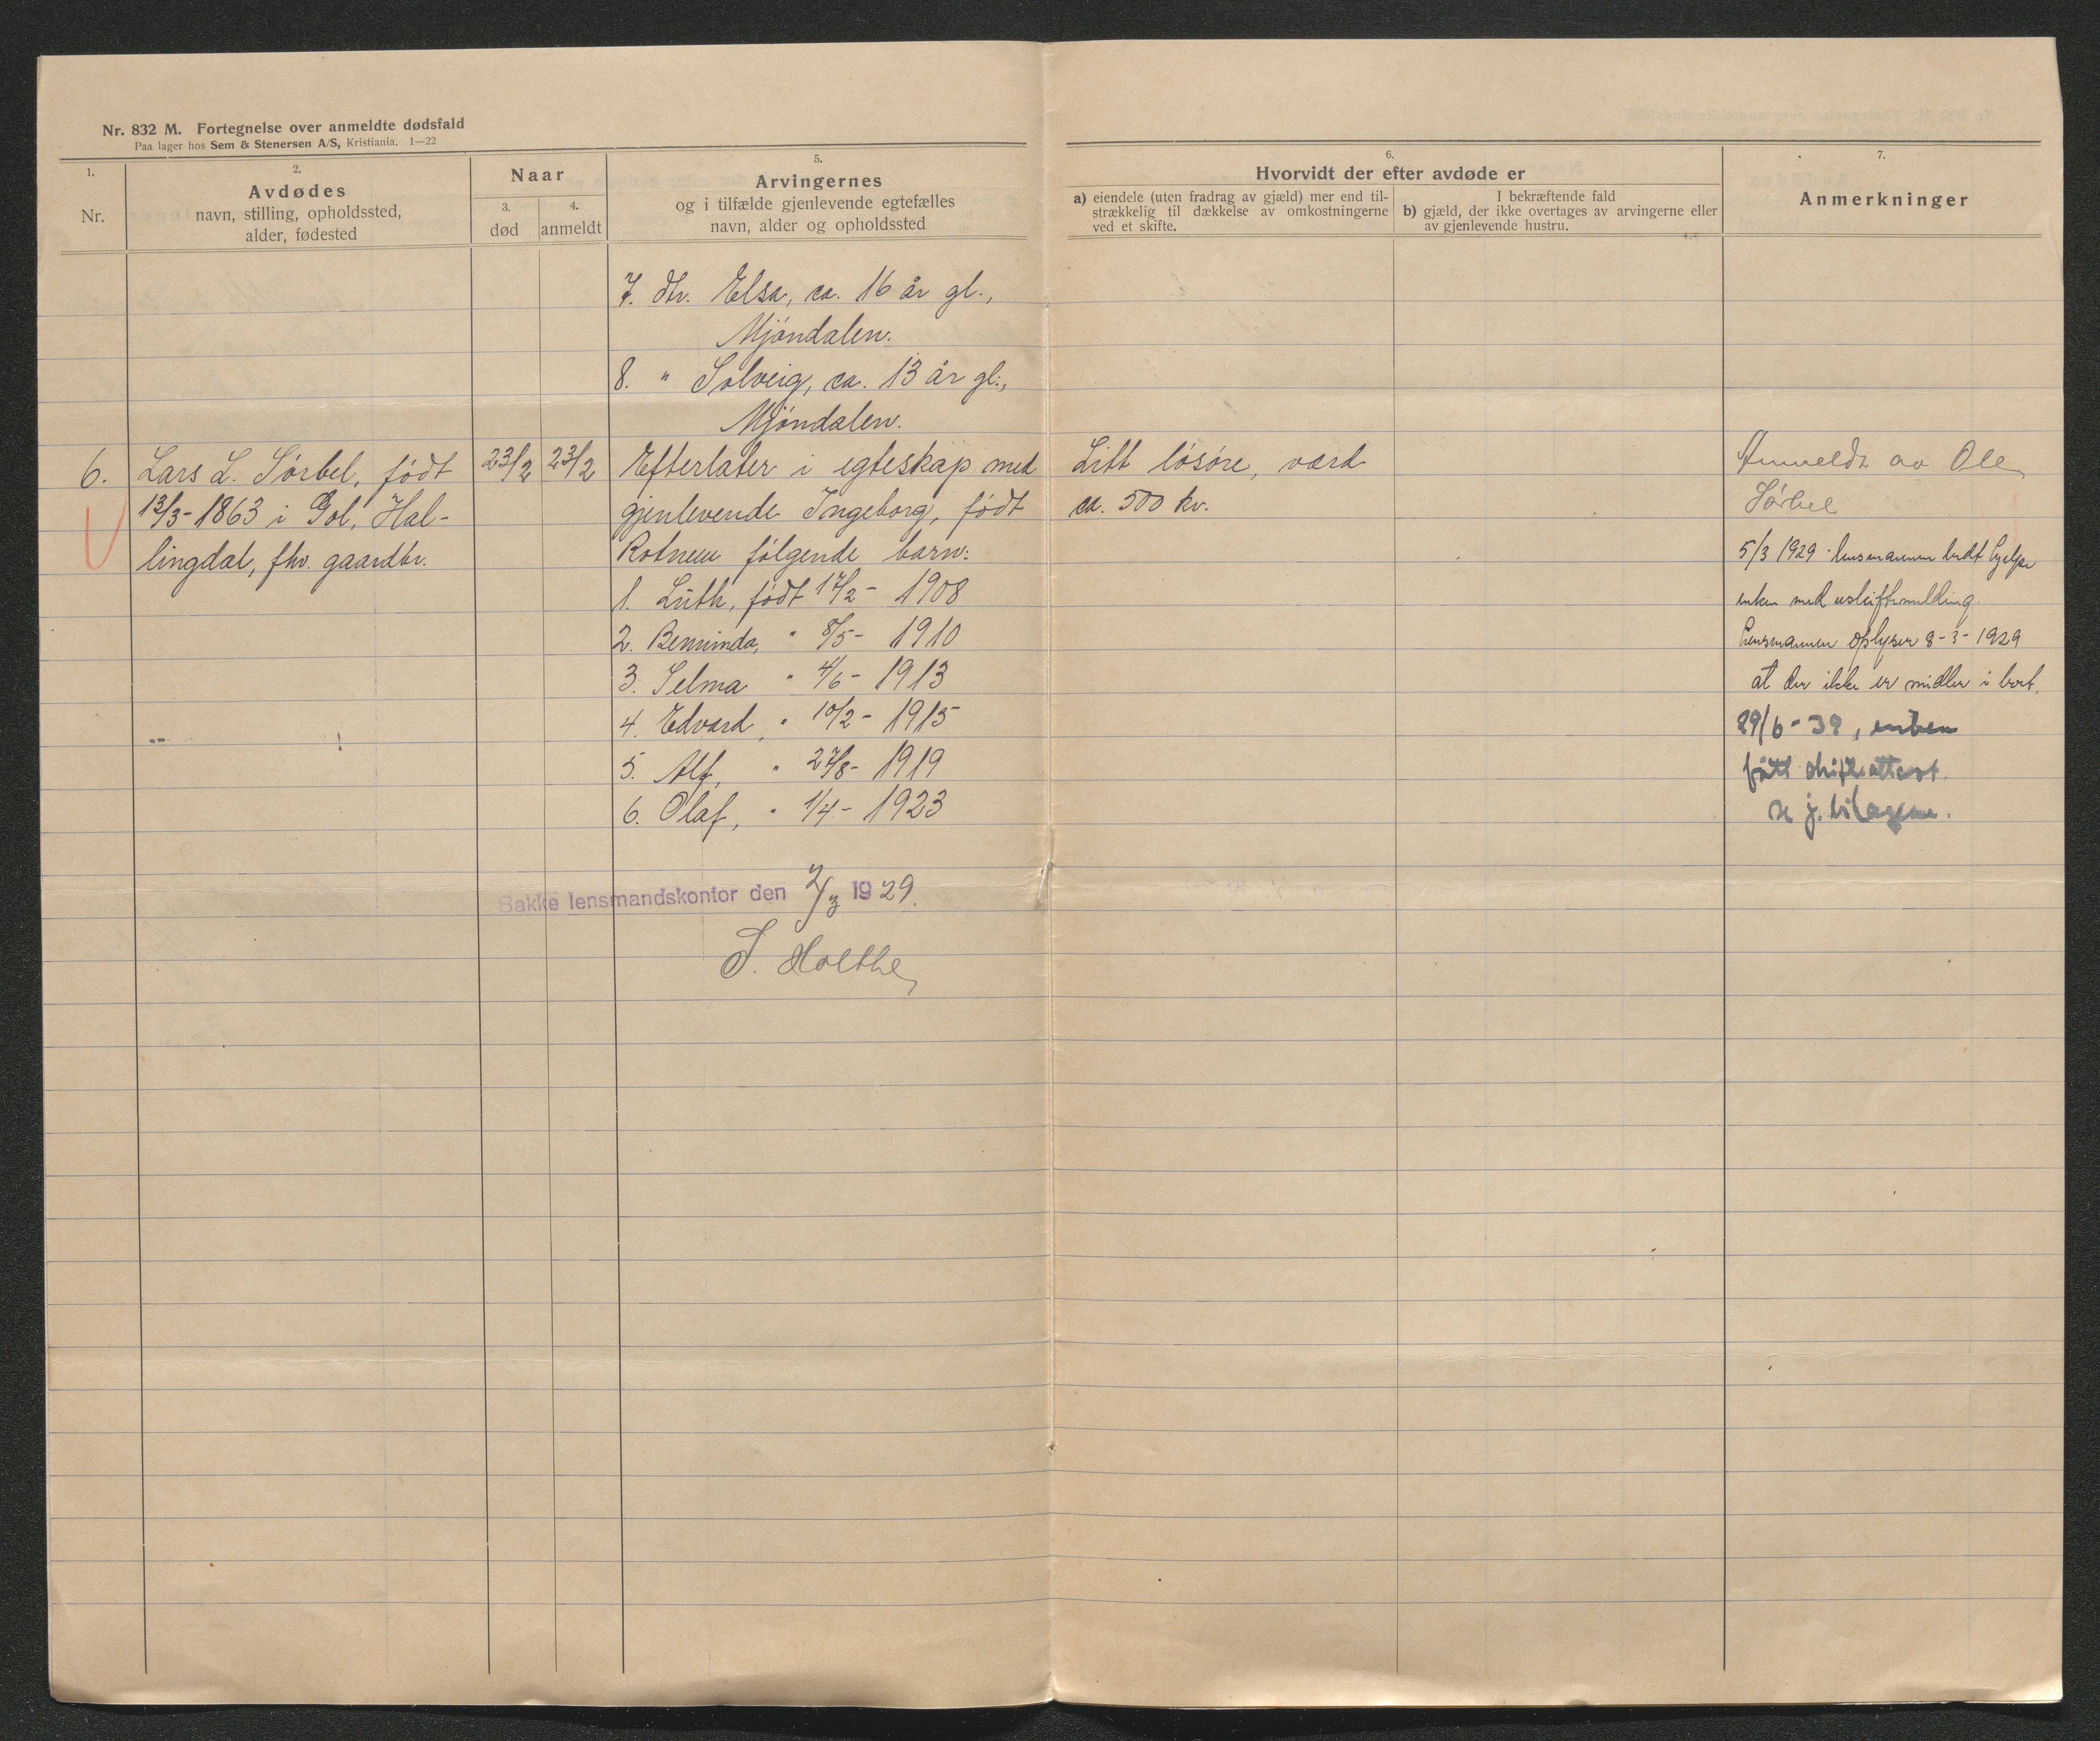 Nr. 832 M. Fortegnelse over anmeldte dødsfald
Paa lager hos Sem & Stenersen A/S, Kristiania. 1—22
1.
Nr.
2.
Avdødes
navn, stilling, opholdssted,
alder, fødested
Naar
3.
død
4.
anmeldt
5.
Arvingernes
og i tilfælde gjenlevende egtefælles
navn, alder og opholdssted
6.
Hvorvidt der efter avdøde er
a) eiendele (uten fradrag av gjæld) mer end til-
strækkelig til dækkelse av omkostningerne
ved et skifte.
I bekræftende fald
b) gjæld, der ikke overtages av arvingerne eller
av gjenlevende hustru.
7.
Anmerkninger
7. dtr. Elsa, ca. 16 år gl.,
Mjöndalen.
8. " Solveig, ca. 13 år gl.,
Mjöndalen.
6.
Lars L. Sörbel, födt
13/3-1863 i Gol, Hal-
lingdal, fhv. gaardbr.
23/2
23/2
Efterlater i egteskap med
gjenlevende Ingeborg, födt
Rotneim fölgende barn:
1. Luth, födt 17/2 - 1908
2. Beminda, " 8/5 - 1910
3. Selma " 4/6 - 1913
4. Edvard, " 10/2 - 1915
5. Alf, " 27/8 - 1919
6. Olaf, " 1/4 - 1923
Litt lösöre, værd
ca. 500 kr.
Anmeldt av Ole
Sörbel
5/3 1929 lensmannen bedt hjelpe
enken med uskiftemelding.
Lensmannen oplyser 8-3-1929
at der ikke er midler i boet.
29/6-39, enken
fått skifteattest.
se j. bilagene.
Bakke lensmandskontor den 2/3 1929.
S. Holthe